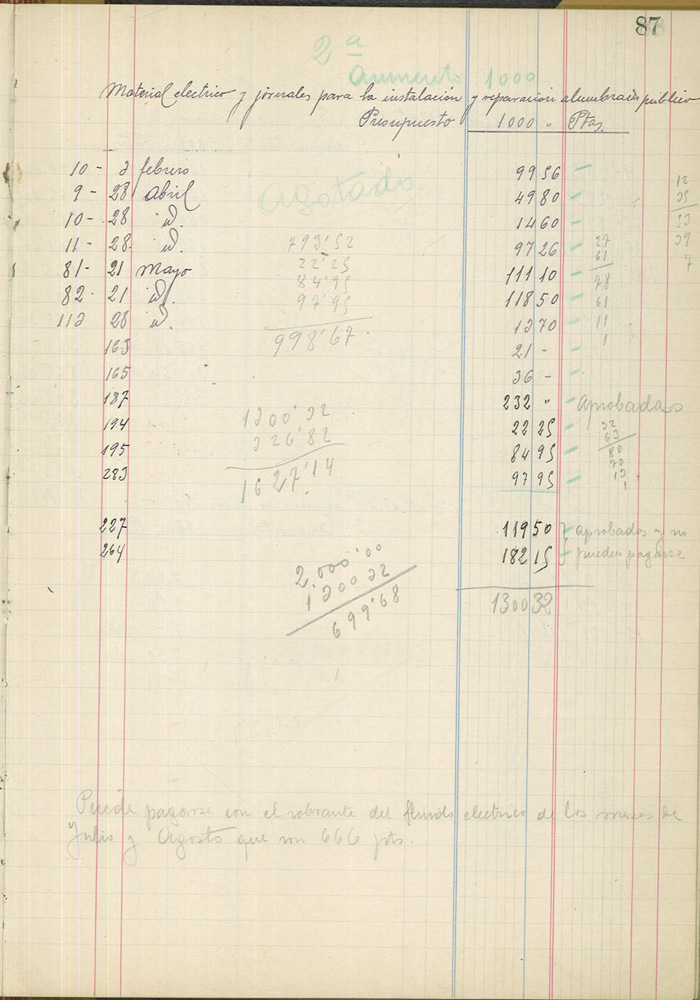 87
2ª
Aumento 1000
Material electrico y jornales para la instalación y reparación alumbrado público
Presupuesto 1000 " Ptas.
Agotado
10 - 2 febrero 99 56 -
9 - 28 Abril 49 80 -
10 - 28 id. 14 60 -
11 - 28. id. 97 26 -
81 - 21 Mayo 111 10 -
82 - 21 id. 118 50 -
112 28 id. 12 70 -
163 21 - -
165 36 - -
187 232 " - aprobadas
194 22 25 -
195 84 95 -
283 97 95 -
227 119 50 - aprobadas y no
264 182 15 - pueden pagarse
1300 32
793'52
22'25
84'95
97'95
998'67.
1300'32
326'82
1627'14
2.000'00
1300 32
699'68
12
25
53
39
7
27
61
78
61
11
1
32
63
80
70
13
1
Puede pagarse con el sobrante del fluido electrico de los meses de
Julio y Agosto que son 666 pts.